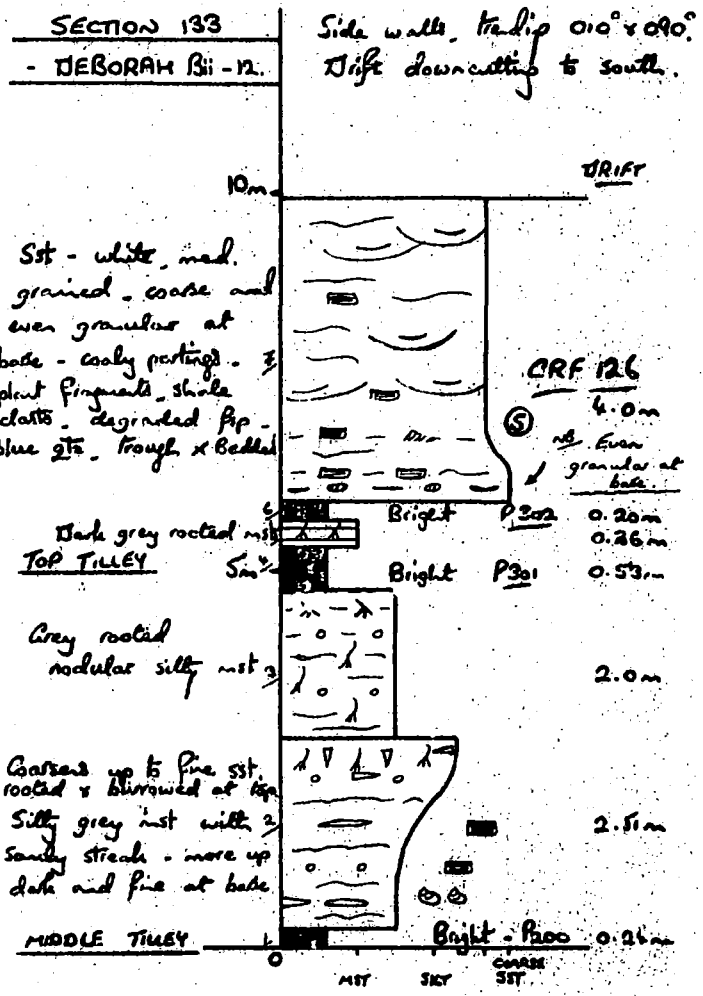 SECTION 133
- DEBORAH Bii - 12.
Side walls, trendip 010° x 090°.
Drift downcutting to south.
DRIFT
10m
Sst - white, med.
grained - coarse and
even granular at
base - coaly partings -
plant fragments, shale
clasts - degraded fsp -
blue qtz, trough x Bedded
7
CRF 126
4.0m
S
NB. Even
granular at
base.
6
Bright P302 0.20m
Dark grey rooted mst
0.26m
TOP TILLEY
5m 4
Bright P301 0.53m
Grey rooted
nodular silty mst 3
2.0m
Coarsens up to fine sst,
rooted & burrowed at top
Silty grey mst with 2
sandy streak - more up
dark and fine at base
2.51m
MIDDLE TILLEY 1
Bright - P200
0
MST SKT COARSE
SST